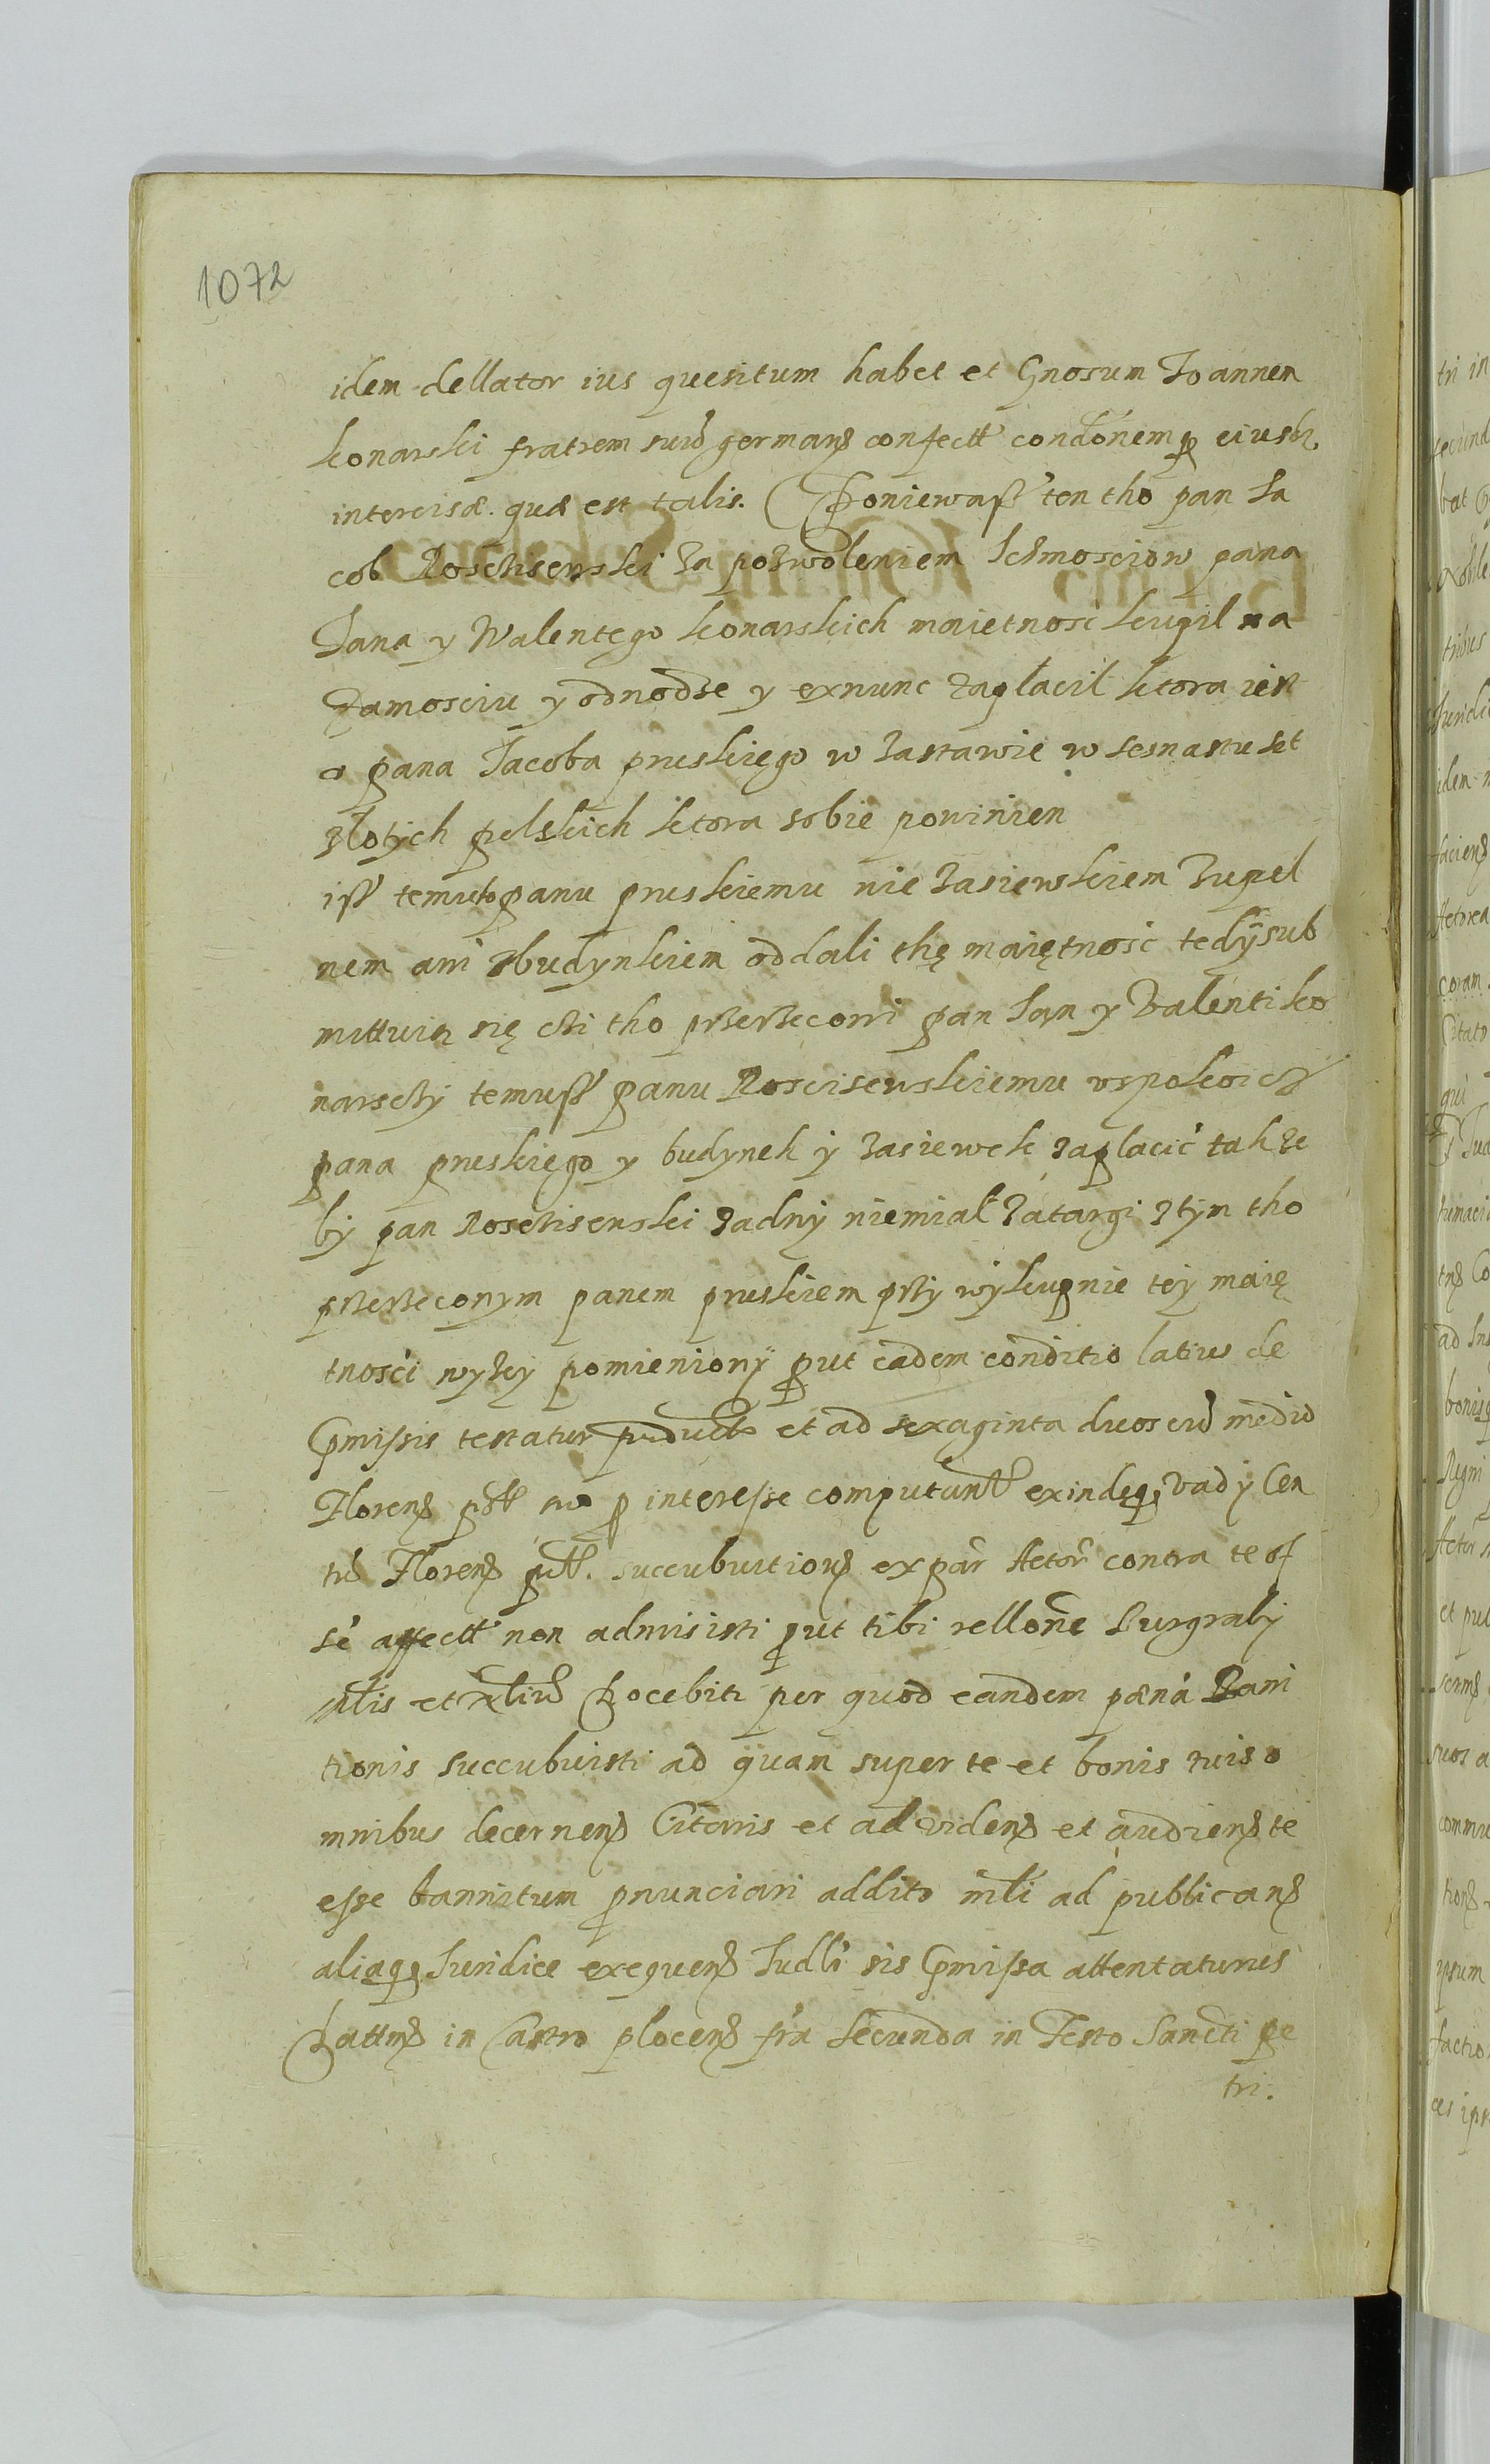 1072
idem dellator ius quesitum habet et Gnosum Joannem
konarski fratrem suū germanȝ confectt condōnem ꝓ eiusdꝫ
intercisæ quæ est talis. Poniewaß ten tho pan Ja
cob Roschisenski za pozwoleniem Ichmosciow pana
Jana y Walentego konarskich maietnosć kupil na
Zamosciu y odnodze y exnunc zaplacil ktora iest
o pana Jacoba pruskiego w zastawie w sesnastu set
zlotych polskich ktora sobie powinien
iß temuto panu pruskiemu nie zasiewskiem zupel
nem ani zbudynkiem oddali thę maiętnosć tedy sub
mittuią się czi tho przerzeconi pan Jan y Valenti ko
narschy temuß panu Roscisewskiemu uspokoicz
pana pruskiego y budynek y zasiewek zaplacić takze
by pan Roschisenski zadny niemial zatargi ztym tho
przerzeconym panem pruskiem przy wykupnie tey maię
tnosći wyzey pomieniony ꝓut eadem conditio latius de
Pmissis testatur et ad sexaginta duos cū medio
Florenȝ ꝓ interesse computantt exindeqꝫ vady Cen
tū Florenȝ succubuitionȝ ex par Actor contra te of
se affectt non admisisti ꝓut tibi rellone Burgraby
mlis et docebitr per quod eandem pæna Bani
tionis succubuisti ad quam super te et bonis tuis o
mnibus decernenȝ Citaris et ad videnȝ et audienȝ te
esse bannitum ꝓnunciari addito mli ad publicanȝ
aliaqꝫ Juridice exequenȝ Judli sis Pmissa attentaturus
Dattmȝ in Castro plocenȝ fra secunda in Festo Sancti pe
tri.